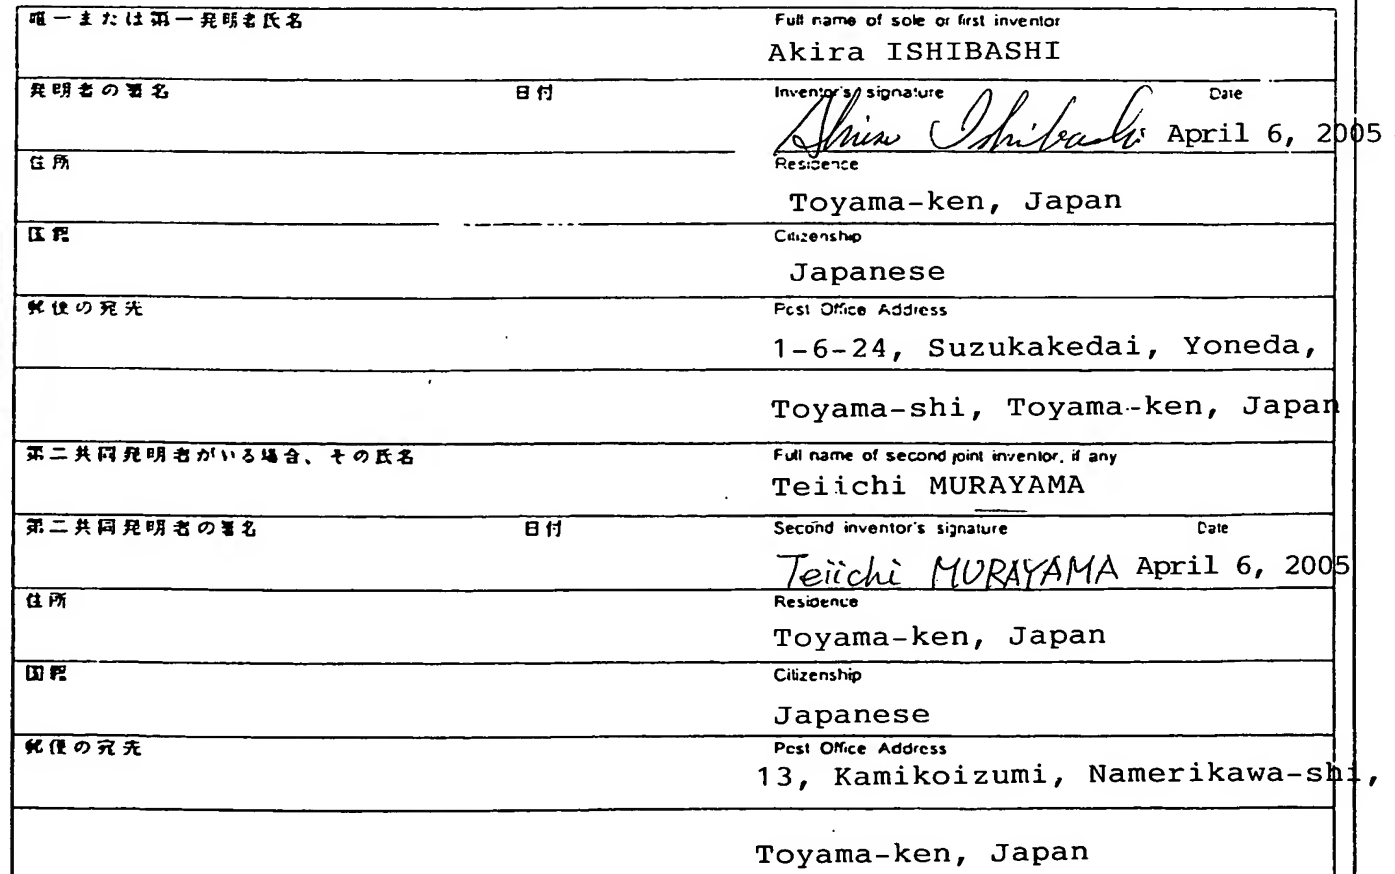 唯一または第一発明者氏名
Full name of sole or first inventor
Akira ISHIBASHI
発明者の署名 日付
Inventor's signature Date
Ishibashi April 6, 2005
住所
Residence
Toyama-ken, Japan
国籍
Citizenship
Japanese
郵便の宛先
Post Office Address
1-6-24, Suzukakedai, Yoneda,
Toyama-shi, Toyama-ken, Japan
第二共同発明者がいる場合、その氏名
Full name of second joint inventor, if any
Teiichi MURAYAMA
第二共同発明者の署名 日付
Second inventor's signature Date
Teiichi MURAYAMA April 6, 2005
住所
Residence
Toyama-ken, Japan
国籍
Citizenship
Japanese
郵便の宛先
Post Office Address
13, Kamikoizumi, Namerikawa-shi,
Toyama-ken, Japan